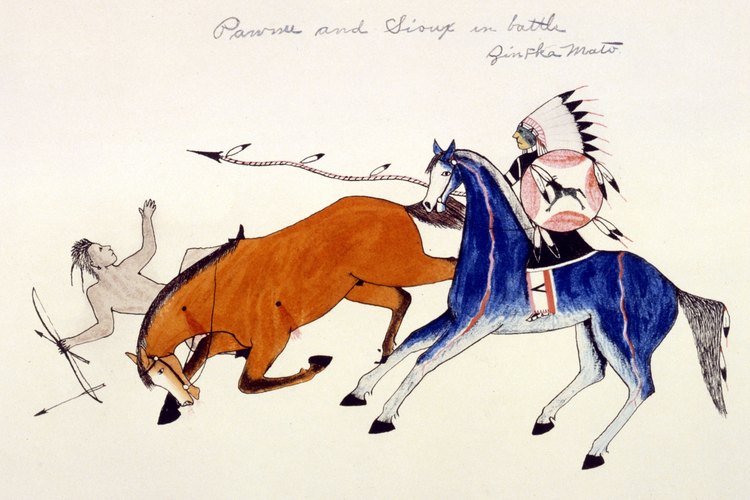 Pawnee and Sioux in battle
Zintka Mato